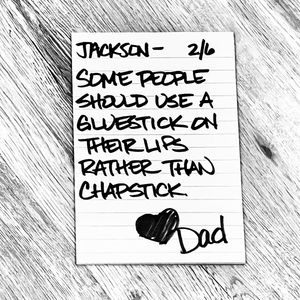 JACKSON- 2/6
SOME PEOPLE
SHOULD USE A
GLUESTICK ON
THEIR LIPS
RATHER THAN
CHAPSTICK.
Dad